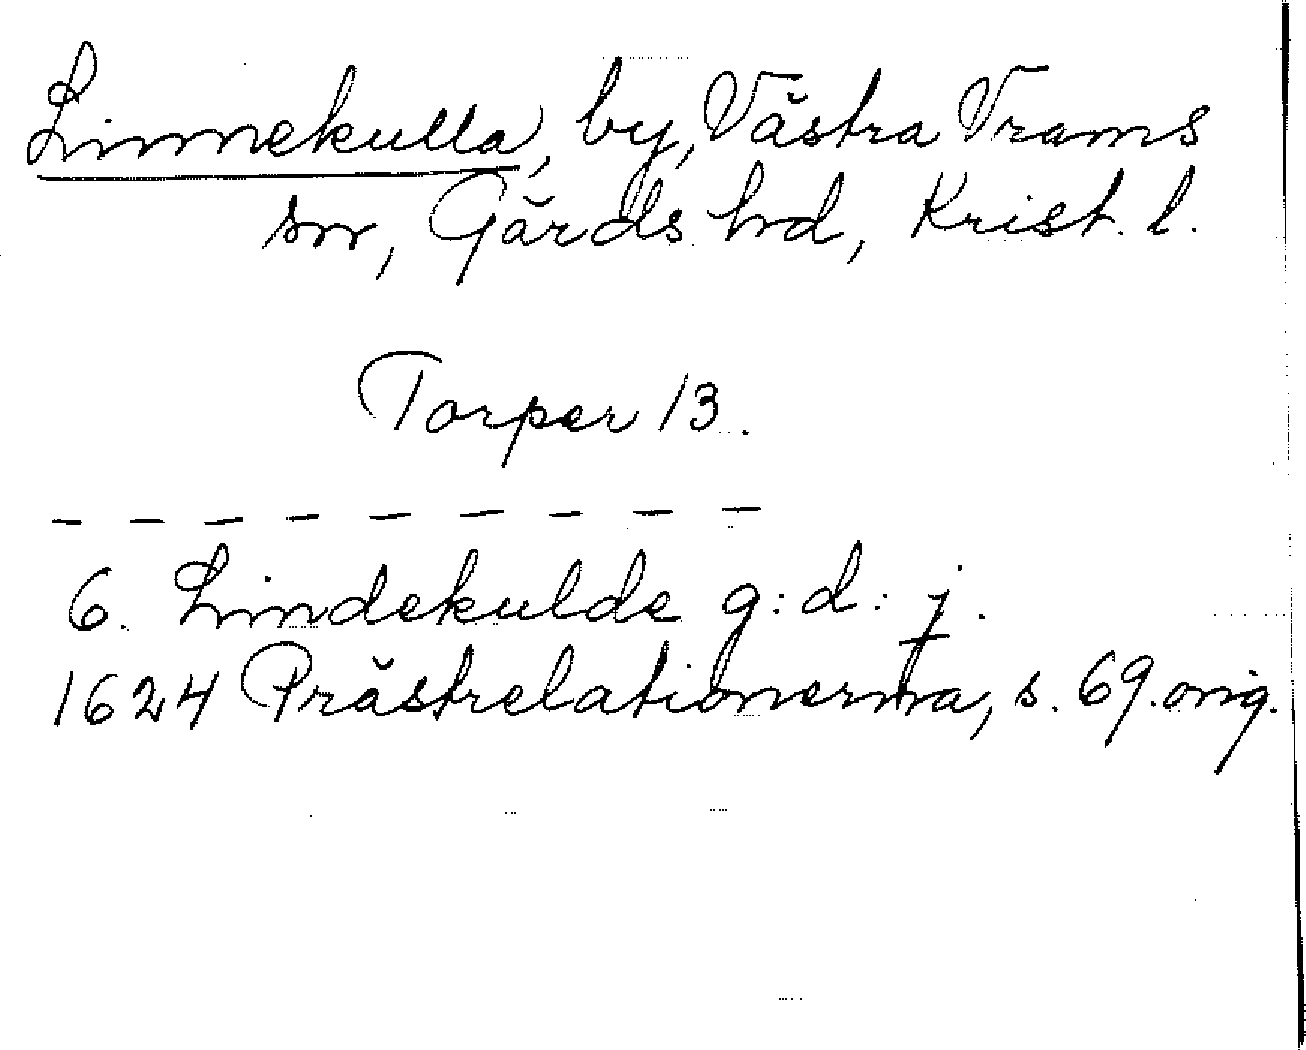 Linnekulla, by, Västra Vrams
sn, Gärds hd, Krist. l.
Torper 13.
— — — — — — — — —
6. Lindekulde g: d: j.
1624 Prästrelationerna, s. 69. orig.